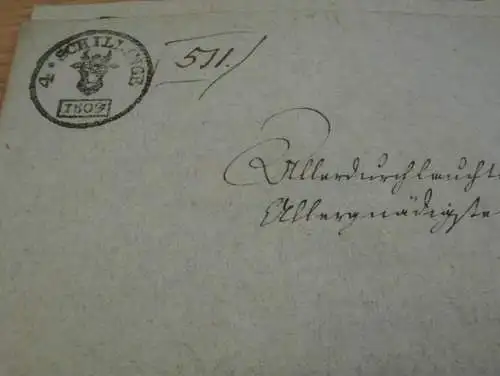 4 * SCHILLINGE
1809
511.
Allerdurchleucht
Allergnädigste